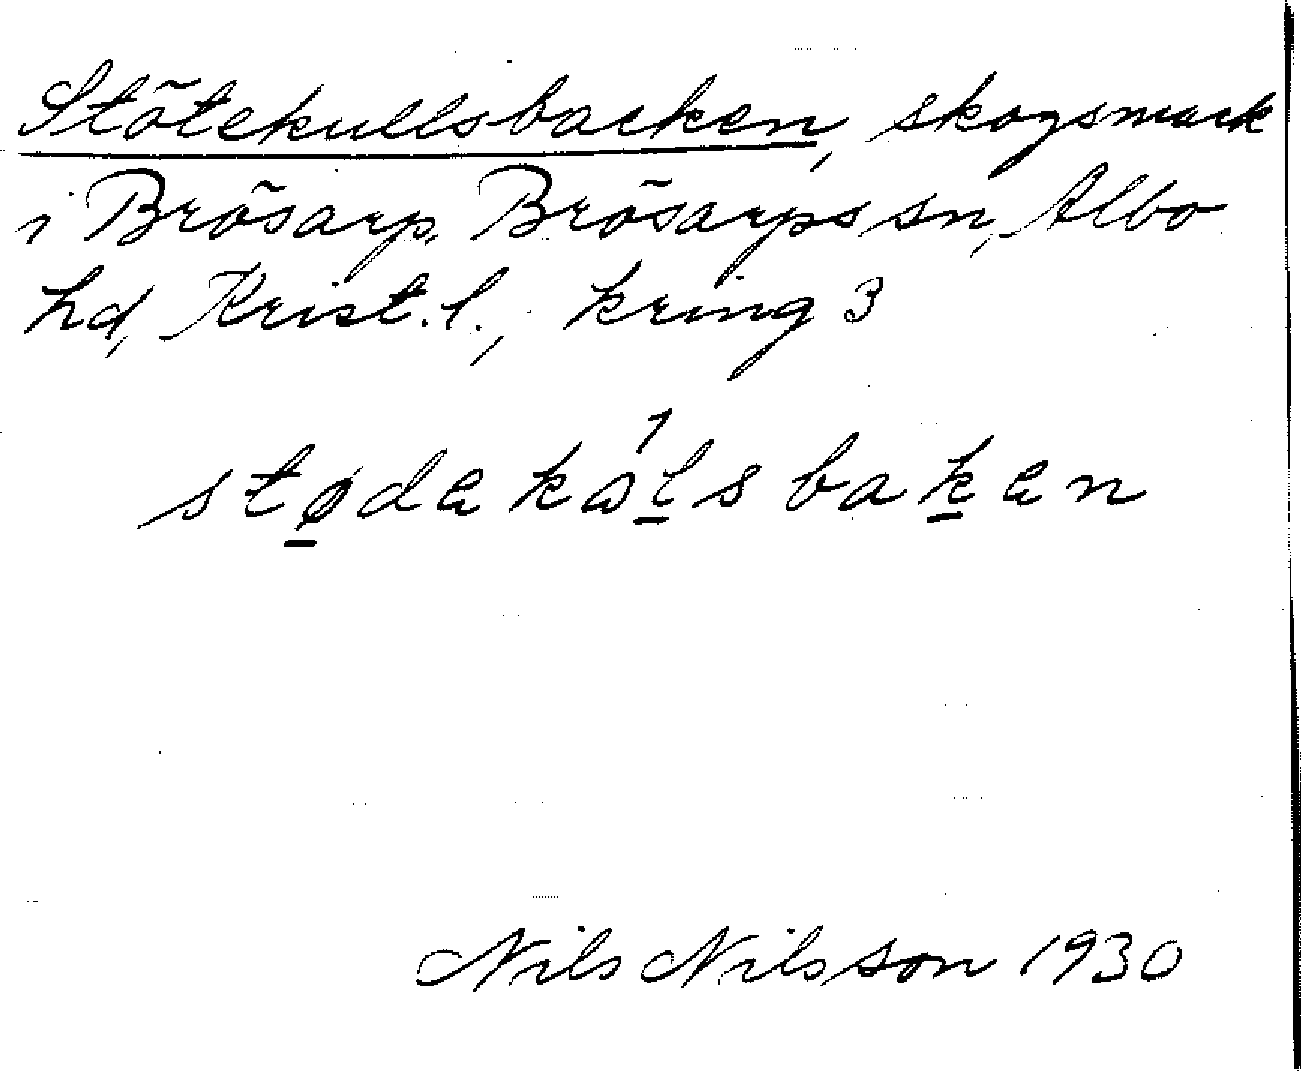 Stötekullsbacken, skogsmark
i Brösarp, Brösarps sn, Albo
hd, Krist. l., kring 3
stødekωlsbaken
Nils Nilsson 1930